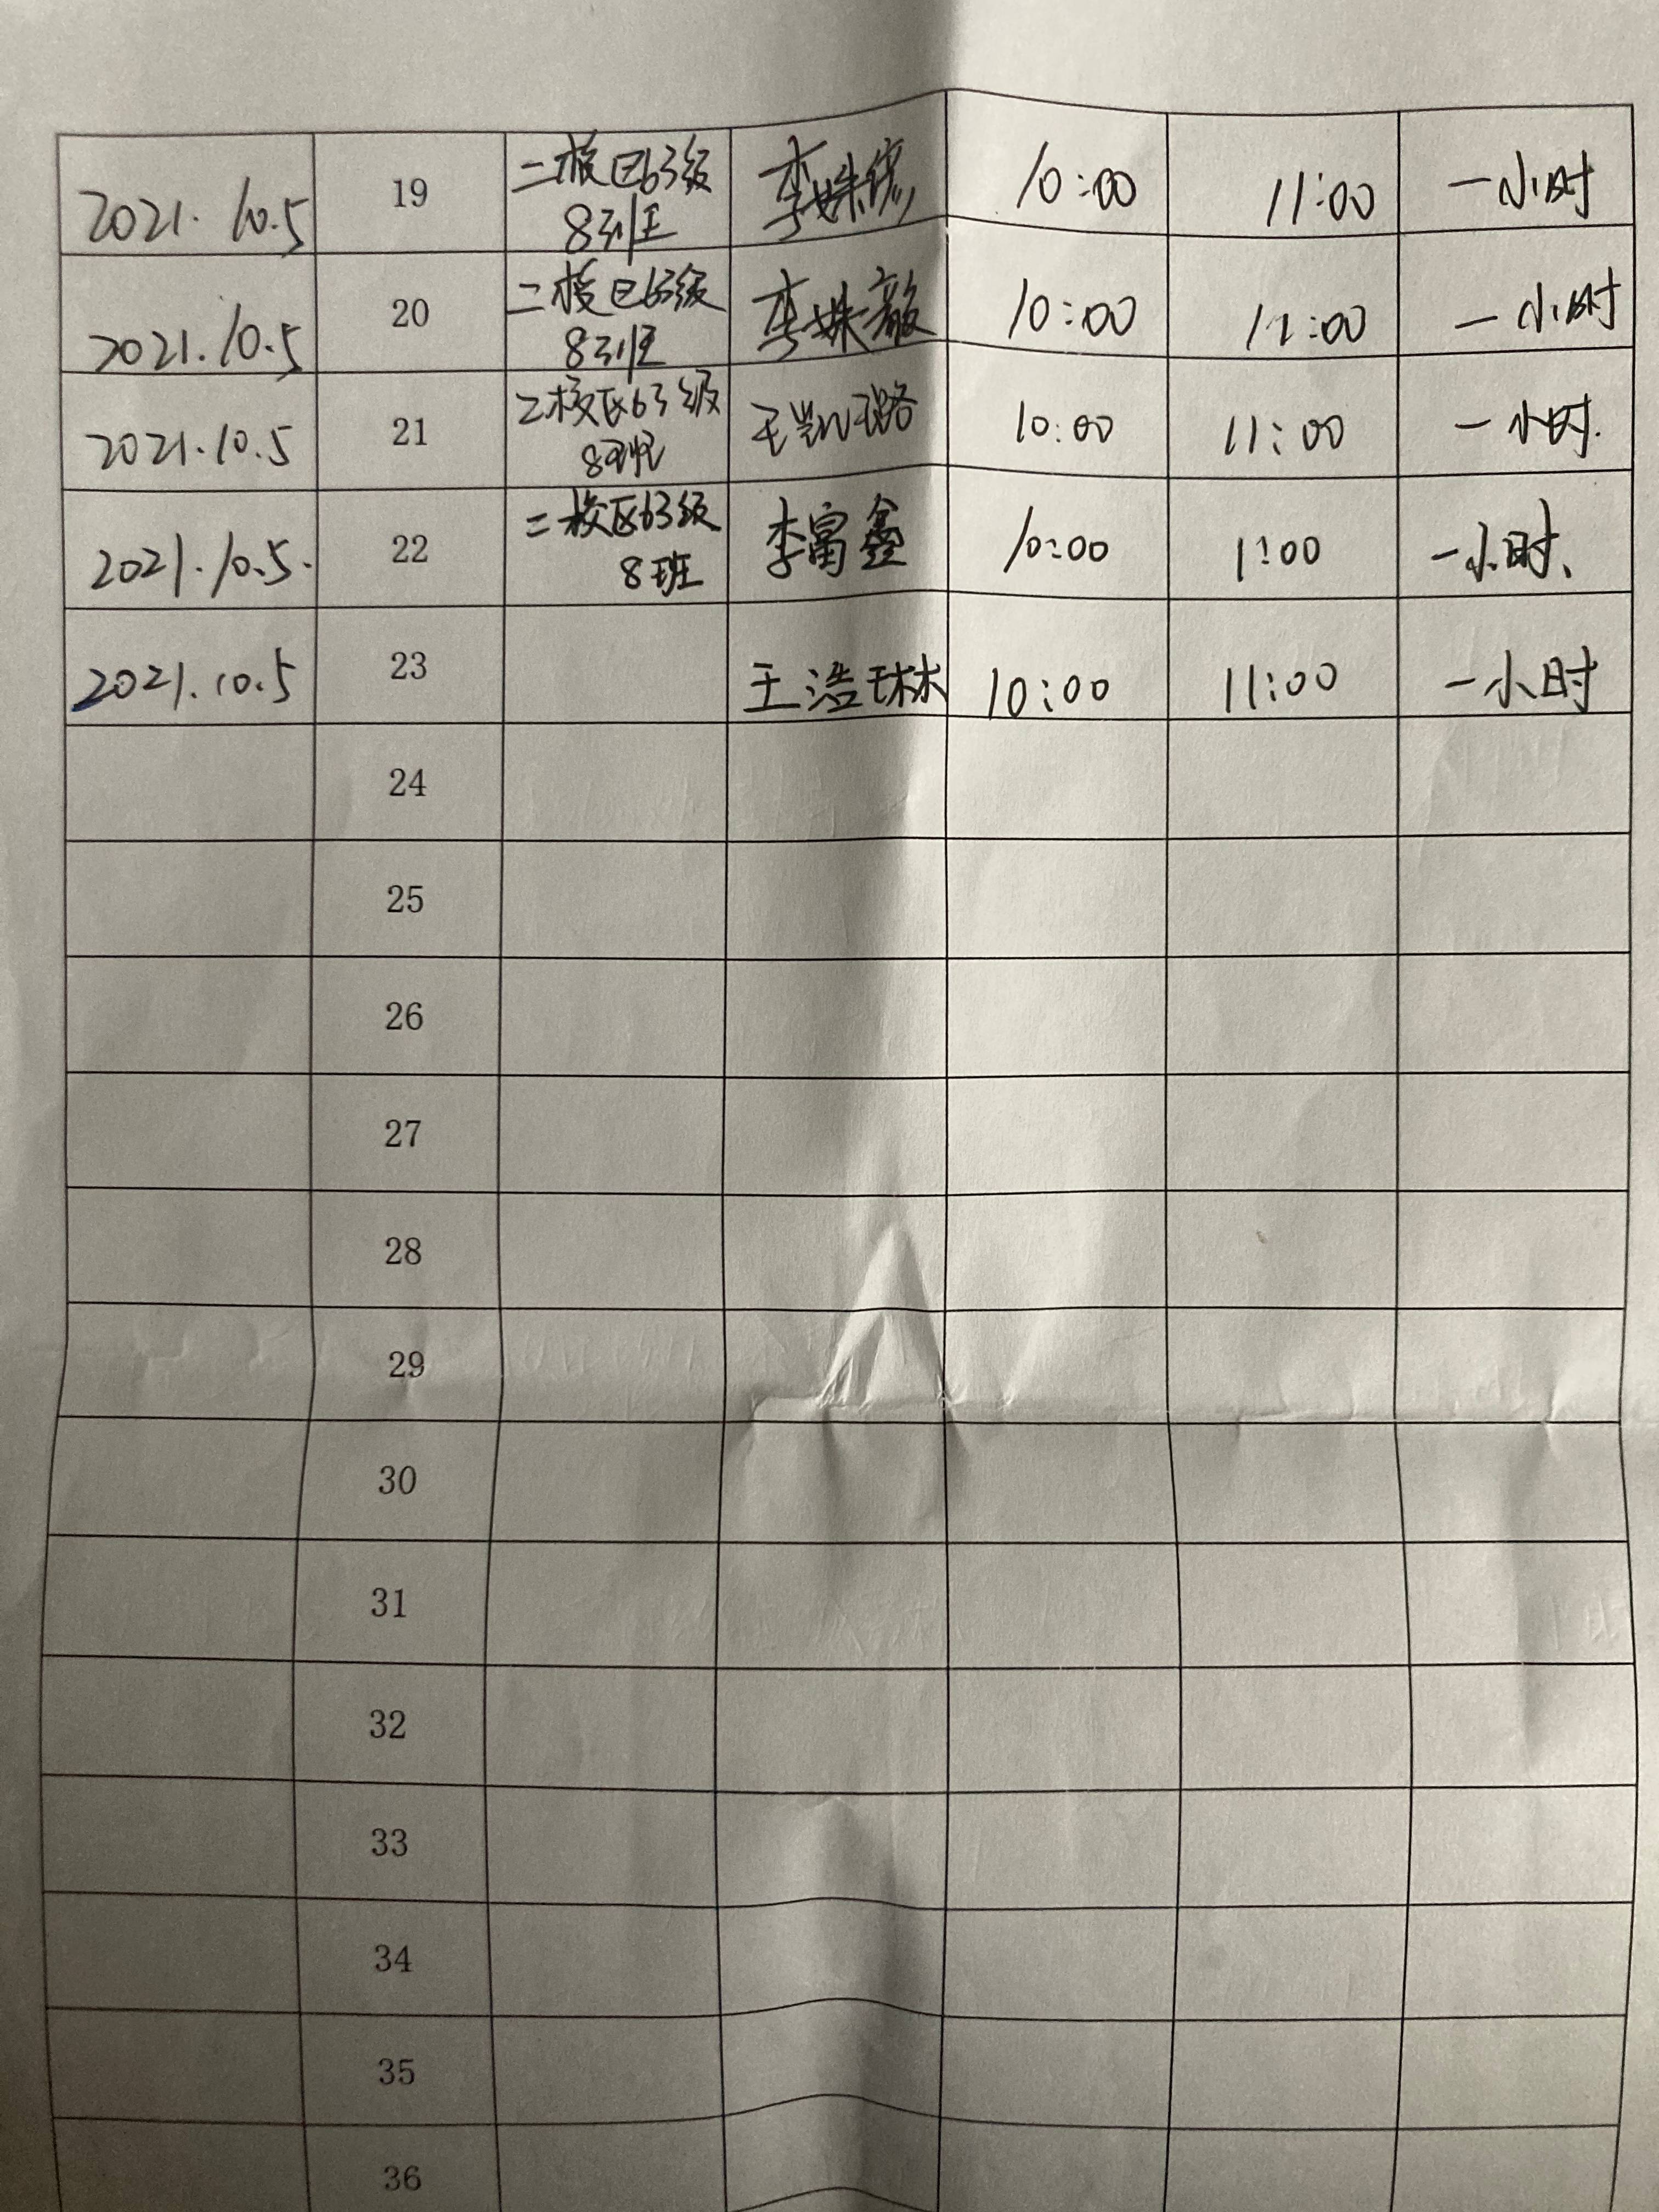 2021.10.5 19 二校区63级 李姝 10:00 11:00 一小时
8班
2021.10.5 20 二校区63级 李姝毅 10:00 11:00 一小时
8班
2021.10.5 21 二校区63级 王凯璐 10:00 11:00 一小时.
8班
2021.10.5. 22 二校区63级 李富鑫 10:00 1:00 一小时、
8班
2021.10.5 23 王浩琳 10:00 11:00 一小时
24
25
26
27
28
29
30
31
32
33
34
35
36